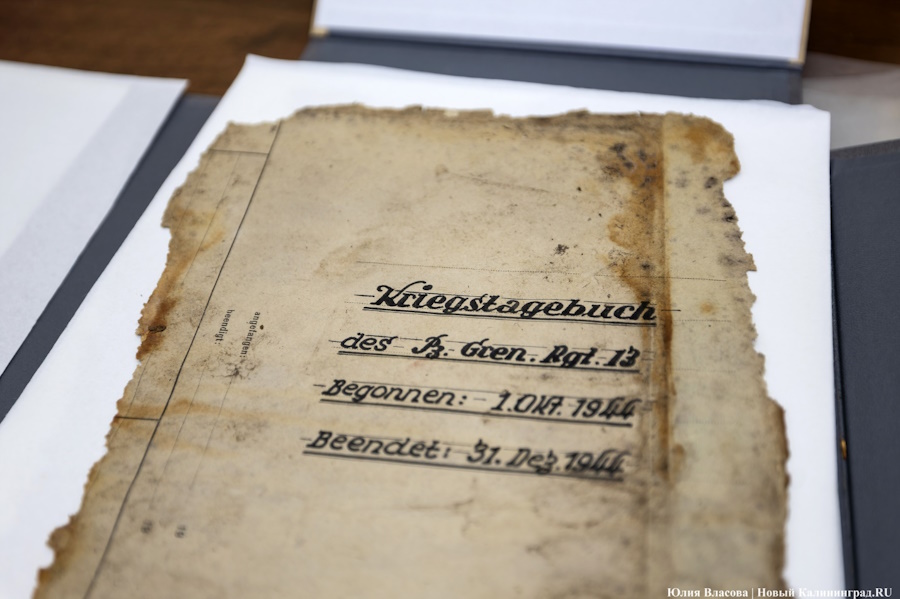 Kriegstagebuch
des Pz. Gren. Rgt. 13
Begonnen: 1.Okt. 1944
Beendet: 31. Dez. 1944
angefangen:
beendigt:
19
19
Юлия Власова | Новый Калининград.RU